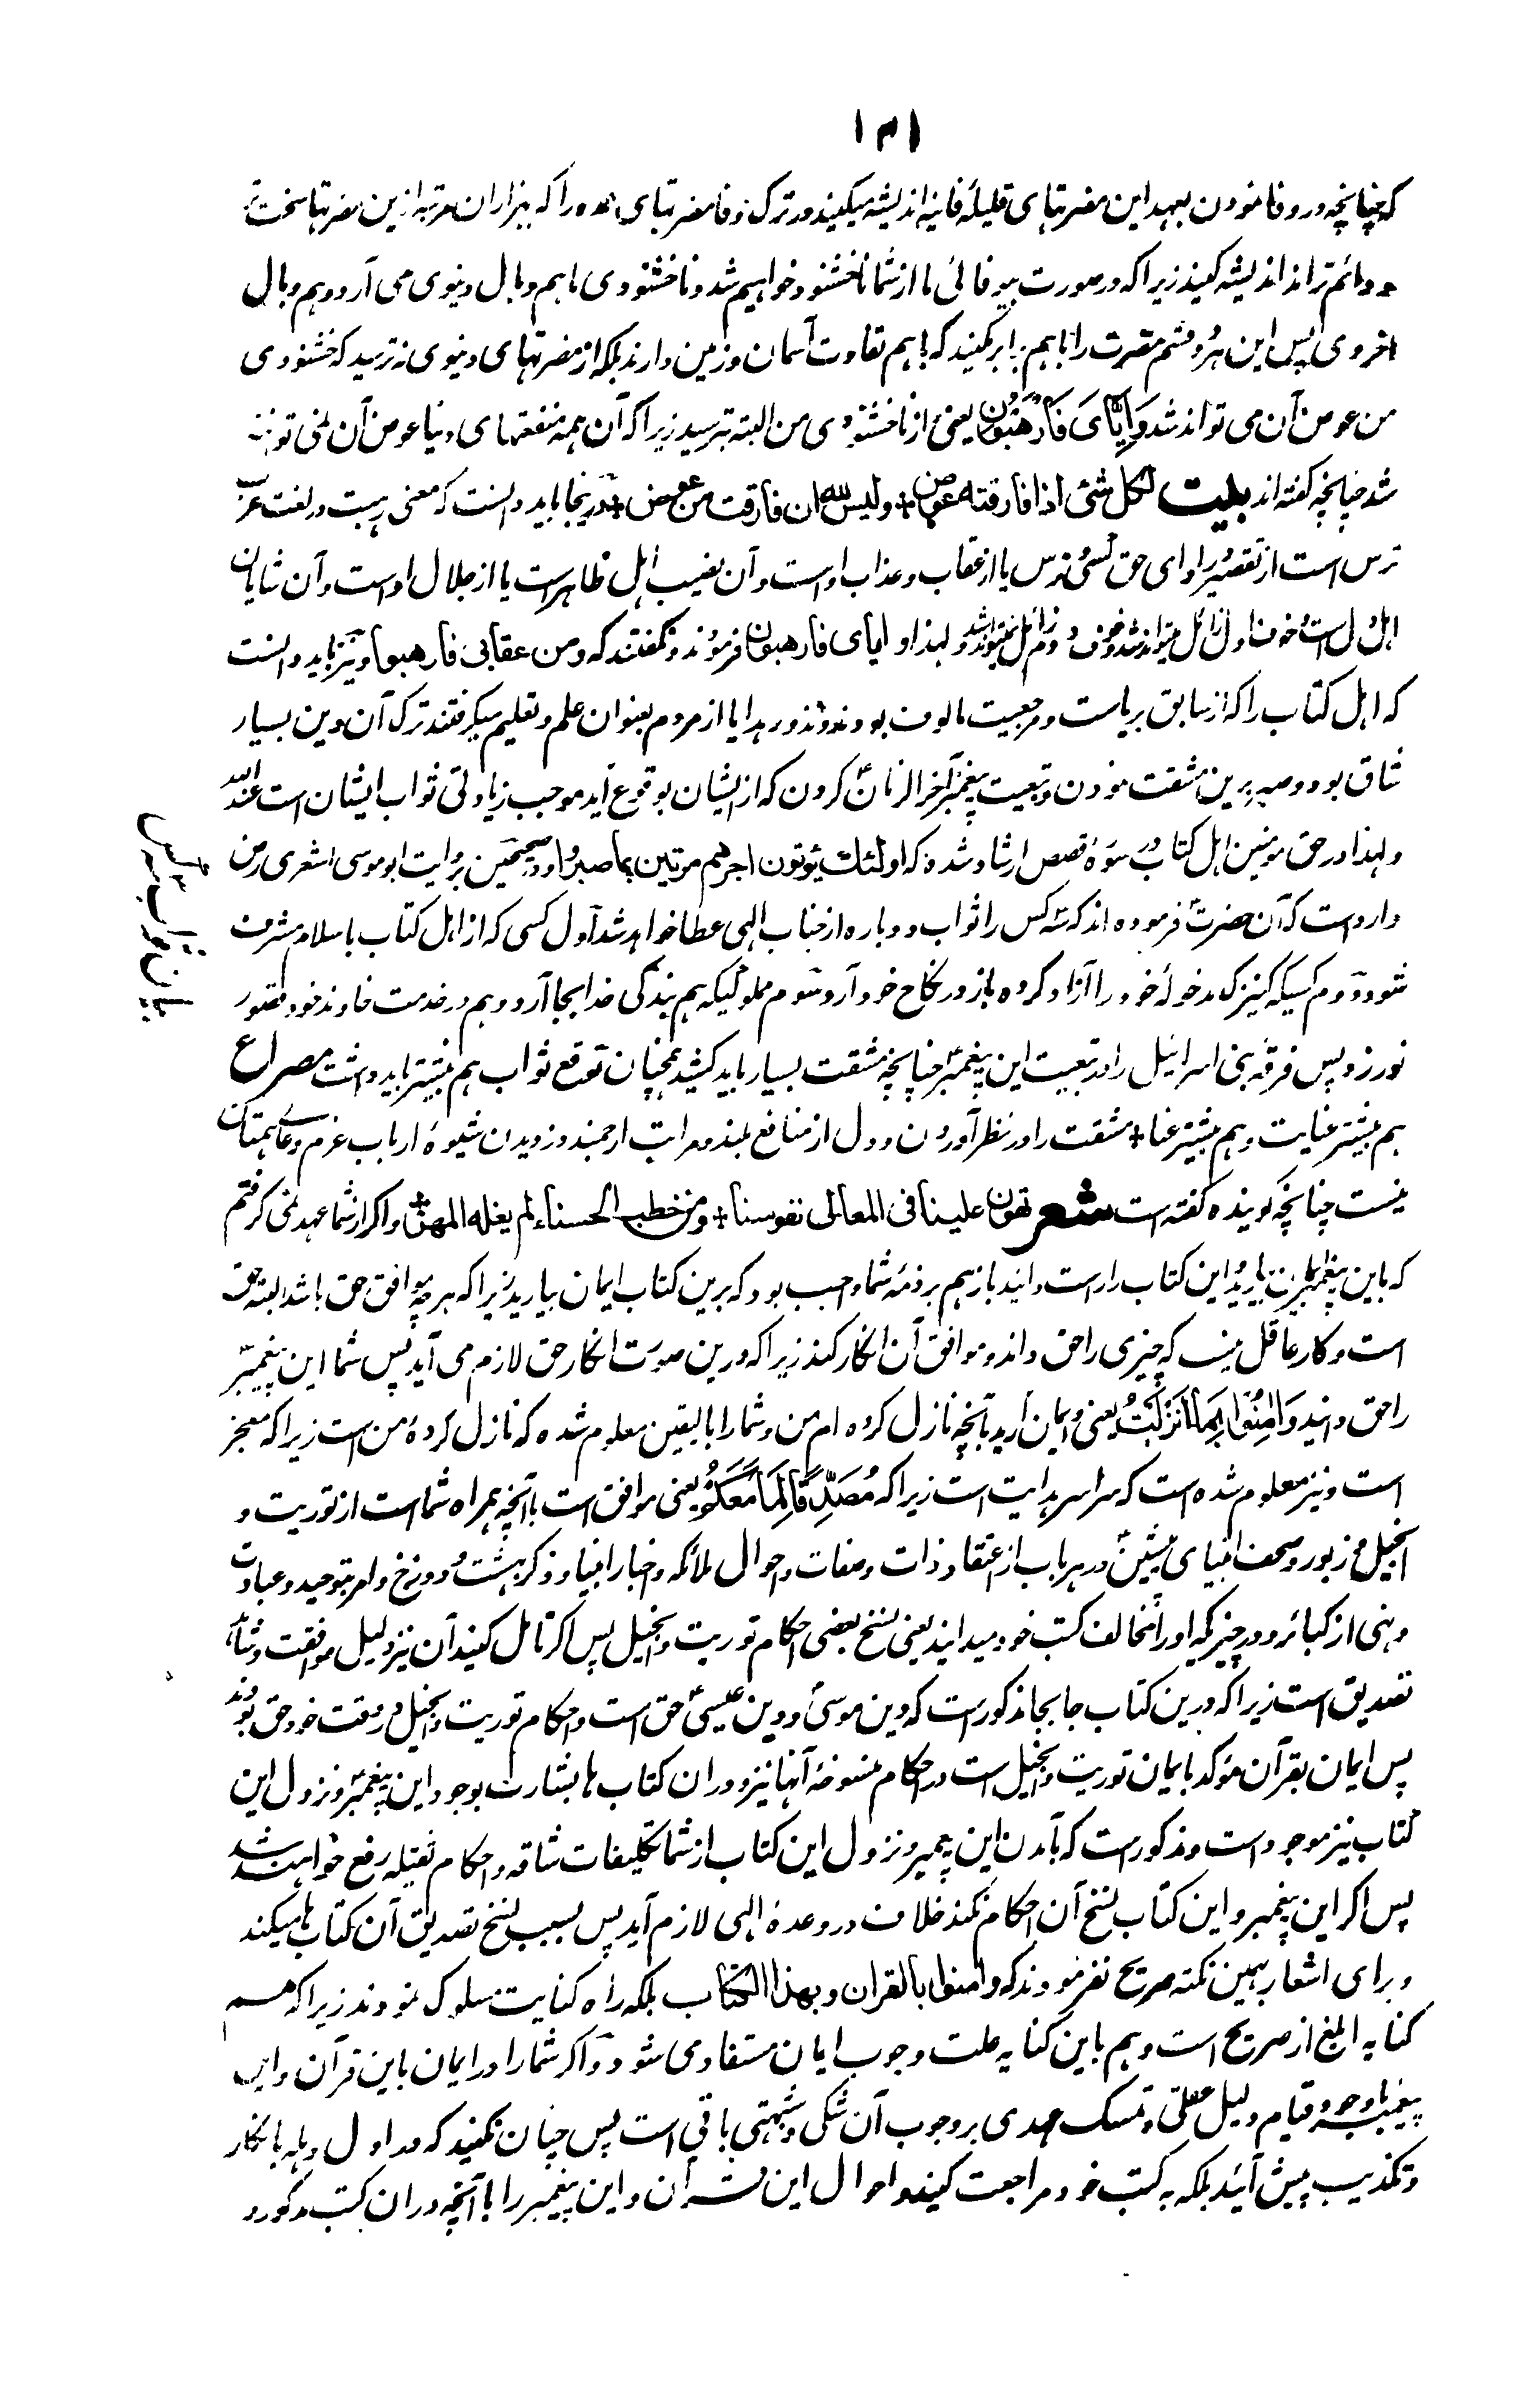 ۱۳۱
که چنانچه در وفا نمودن بعهد این مضرتهای قلیلهٔ فانیه اندیشه میکنید در ترک وفا مضرتهای را که هزاران مرتبه ازین مضرتها سخت تر
و دائم تراند اندیشه کنید زیرا که در صورت بیوفائی ما از شما ناخشنود خواهیم شد و ناخشنودی ما هم وبال دنیوی می آرد و هم وبال
اخروی پس این هر دو قسم مضرت را باهم برابر مکنید که باهم تفاوت آسمان و زمین دارند بلکه از مضرتهای دنیوی نه ترسید که خشنودی
من عوض آن می تواند شد وَاِیَّایَ فَارْهَبُوْنِ یعنی از ناخشنودی من البته بترسید زیرا که آن همه منفعتهای دنیا عوض آن نمی تواند
شد چنانچه گفته اند بیت لکل شئ اذا فارقته عوض + ولیس لله ان فارقت من عوض + درینجا باید دانست که معنی رهبت در لغت عرب
ترس است از تقصیر در ادای حق کسی و ترس یا از عقاب و عذاب او است و آن نصیب اهل ظاهر است یا از جلال او است و آن شایان
اهل دل است و خوف اول زائل میتواند شد و خوف دوم زائل نمیتواند شد و لهذا و ایای فارهبون فرمودند و نگفتند که ومن عقابی فارهبوا و نیز باید دانست
که اهل کتاب را که از سابق بریاست و مرجعیت مالوف بودند و نذور و هدایا از مردم بعنوان علم و تعلیم میگرفتند ترک آن دین بسیار
شاق بود و صبر برین مشقت نمودن و تبعیت پیغمبر آخر الزمان کردن که از ایشان بوقوع آید موجب زیادتی ثواب ایشان است عند الله
و لهذا در حق مومنین اهل کتاب در سوره قصص ارشاد شده که اولئك یؤتون اجرهم مرتین بما صبروا و در صحیحین بروایت ابو موسی اشعری رض
وارد است که آن حضرت فرموده اند که سه کس را ثواب دوباره از جناب الهی عطا خواهد شد اول کسی که از اهل کتاب باسلام مشرف
شود دوم کسیکه کنیزک مدخولهٔ خود را آزاد کرده باز در نکاح خود آرد سوم مملوکیکه هم بندگی خدا بجا آرد و هم در خدمت خاوند خود قصور
نورزد پس فرقهٔ بنی اسرائیل را در تبعیت این پیغمبر چنانچه مشقت بسیار باید کشید همچنان توقع ثواب هم بیشتر باید داشت مصراع
هم بیشتر عنایت و هم بیشتر عنا + مشقت را در نظر آوردن و دل از منافع بلند و مراتب ارجمند دزدیدن شیوهٔ ارباب عزم و عالی همتان
نیست چنانچه گوینده گفته است شعر تهون علینا فی المعالی نفوسنا + ومن خطب الحسناء لم یغله المهر + و اگر از شما عهد نمی گرفتم
که باین پیغمبر ایمان بیارید و این کتاب را راست دانید باز هم بر ذمهٔ شما واجب بود که برین کتاب ایمان بیارید زیرا که هر چه موافق حق باشد البته حق
است و کار عاقل نیست که چیزی را حق داند و موافق آن را انکار کند زیرا که درین صورت انکار حق لازم می آید پس شما این پیغمبر
را حق دانید وَاٰمِنُوْا بِمَا اَنْزَلْتُ یعنی و ایمان آرید بآنچه نازل کرده ام من و شما را بالیقین معلوم شده که نازل کردهٔ من است زیرا که معجز
است و نیز معلوم شده است که سراسر هدایت است زیرا که مُصَدِّقًا لِّمَا مَعَكُمْ یعنی موافق است با آنچه همراه شما است از توریت و
انجیل و زبور و صحف انبیای پیشین در هر باب از اعتقاد ذات و صفات و احوال ملائکه و اخبار انبیا و ذکر بهشت و دوزخ و امر بتوحید و عبادت
و نهی از کبائر و در چیزیکه او را مخالف کتب خود میدانید یعنی نسخ بعضی احکام توریت و انجیل پس اگر تامل کنید آن نیز دلیل موافقت و شاهد
تصدیق است زیرا که درین کتاب جا بجا مذکور است که دین موسی و دین عیسی حق است و احکام توریت و انجیل در وقت خود حق بودند
پس ایمان بقرآن مؤکد با ایمان توریت و انجیل است در احکام منسوخهٔ آنها نیز و در ان کتاب ها بشارت بوجود این پیغمبر و نزول این
کتاب نیز موجود است و مذکور است که بآمدن این پیغمبر و نزول این کتاب از شما تکلیفات شاقه و احکام ثقیله رفع خواهند شد
پس اگر این پیغمبر و این کتاب نسخ آن احکام نکند خلاف در وعدهٔ الهی لازم آید پس بسبب نسخ تصدیق آن کتاب ها میکند
و برای اشعار بهمین نکته صریح نفرمودند که وامنوا بالقران وبهذا الکتاب بلکه راه کنایت سلوک نمودند زیرا که هم
کنایه ابلغ از صریح است و هم باین کنایه علت وجوب ایمان مستفاد می شود و اگر شما را در ایمان باین قرآن و این
پیغمبر با وجود قیام دلیل عقلی و تمسک عهدی بر وجوب آن شکی و شبهتی باقی است پس چنان نکنید که در اول وهله بانکار
و تکذیب پیش آئید بلکه به کتب خود مراجعت کنید و احوال این قرآن و این پیغمبر را با آنچه در ان کتب مذکور و
بیان ثواب سه کس